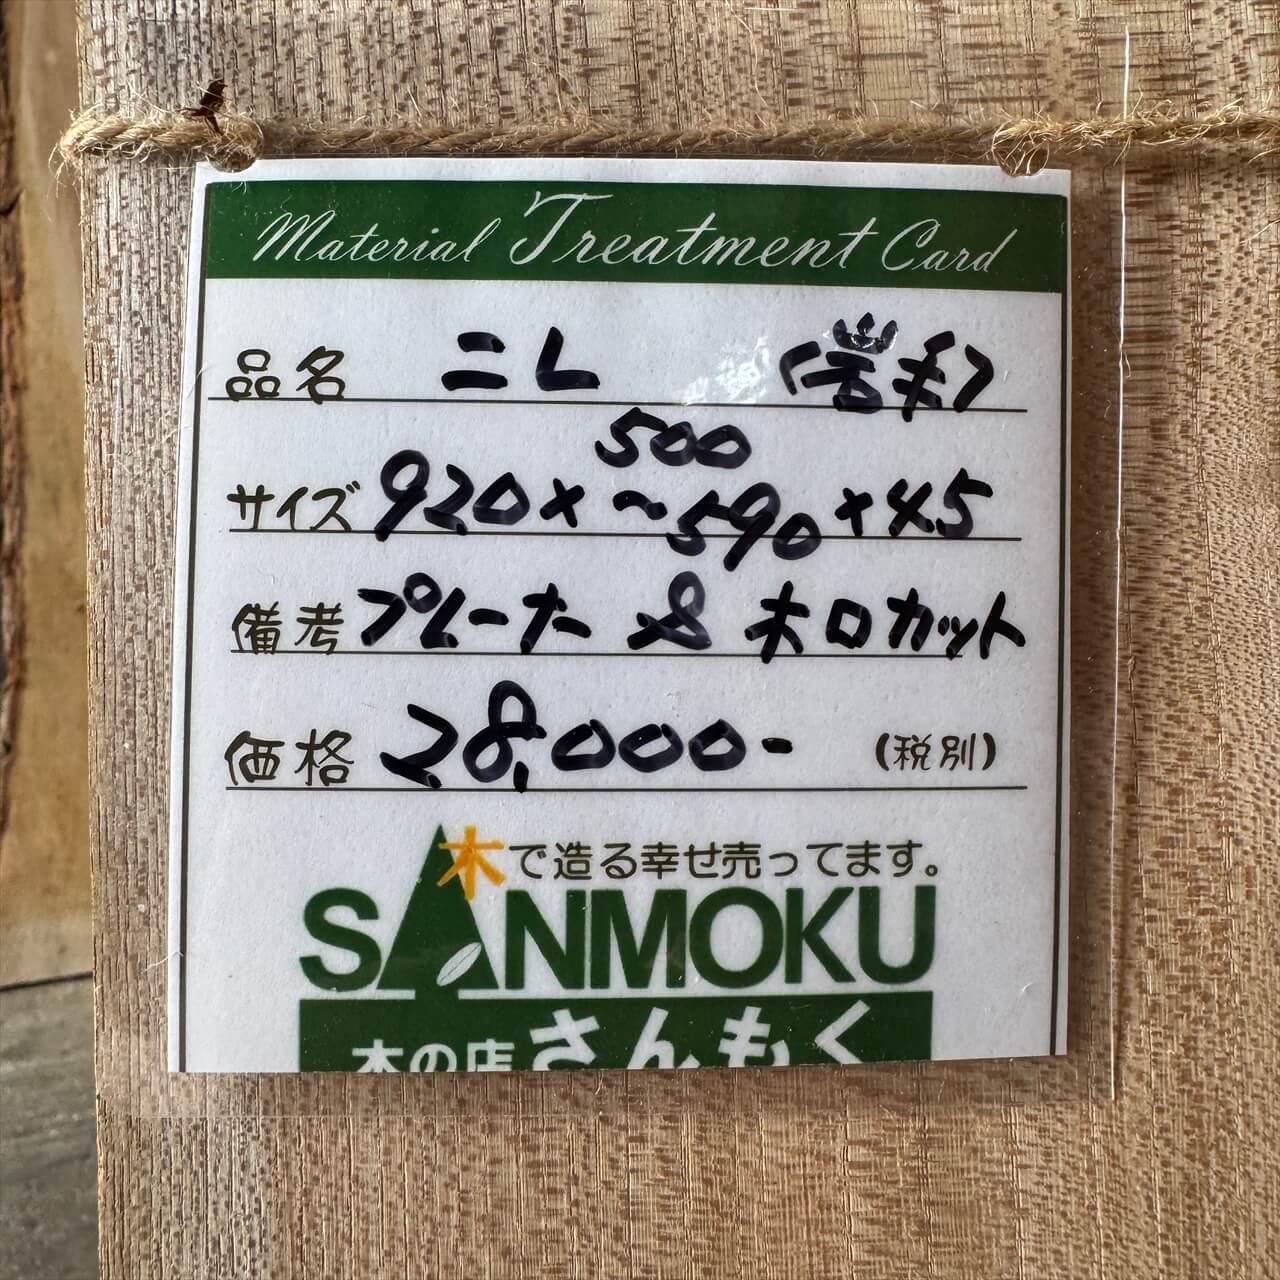 Material Treatment Card
品名 ニレ (岩手)
サイズ 920× 500～590 ×45
備考 プレーナー & 木口カット
価格 28,000- (税別)
木で造る幸せ売ってます。
SANMOKU
木の店 さんもく